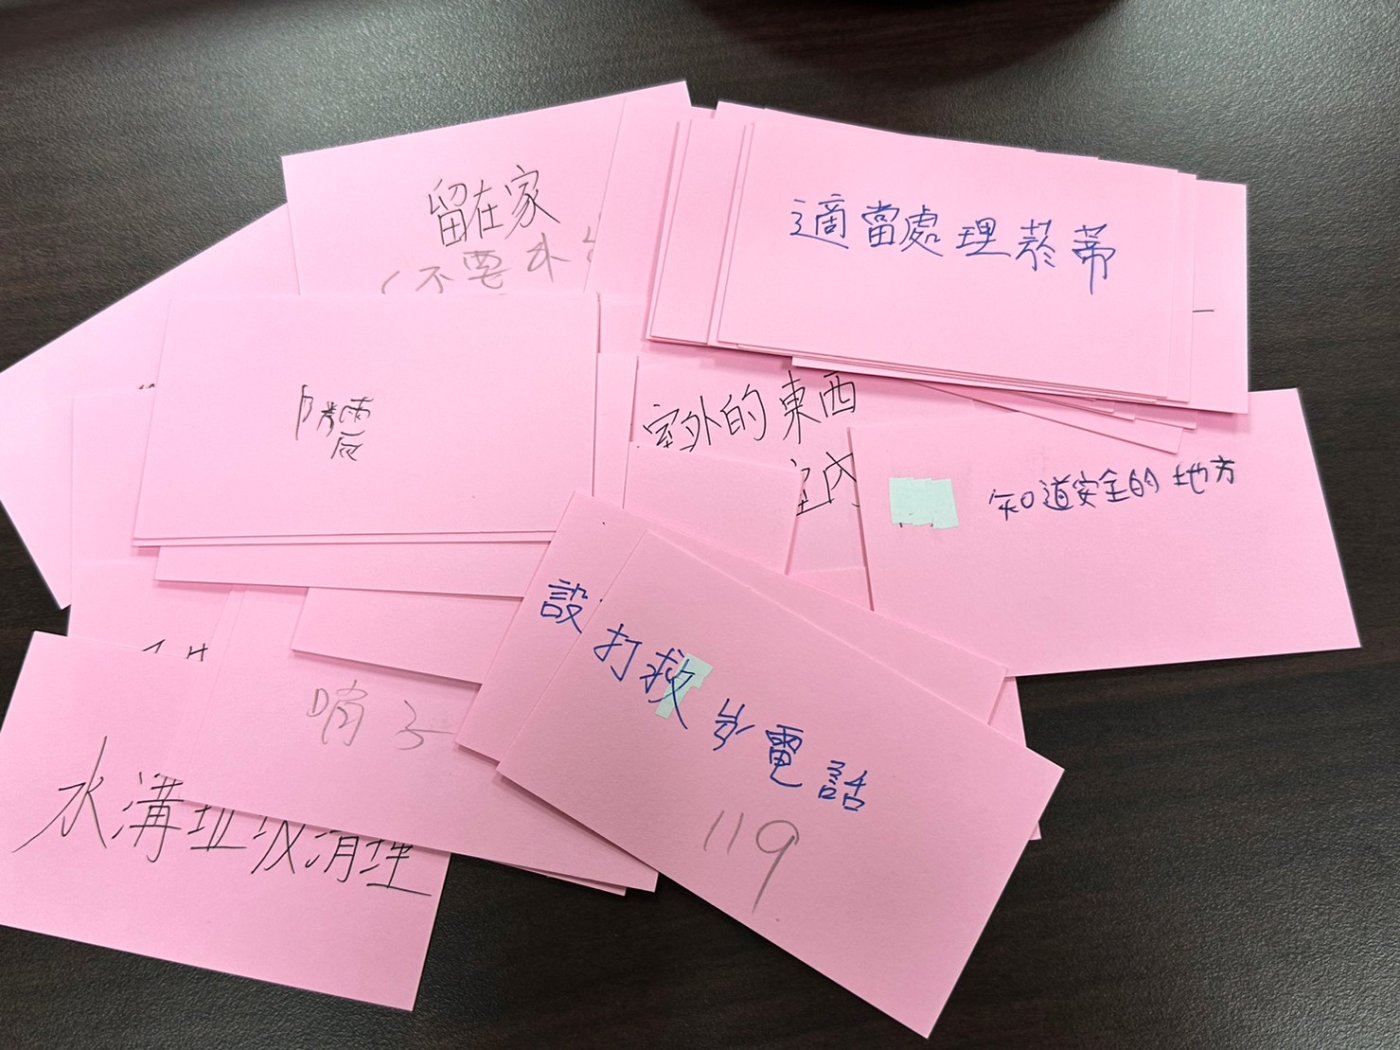 留在家
(不要外
適當處理菸蒂
室外的東西
室內
知道安全的地方
設
打救災電話
119
哨子
水溝垃圾清理